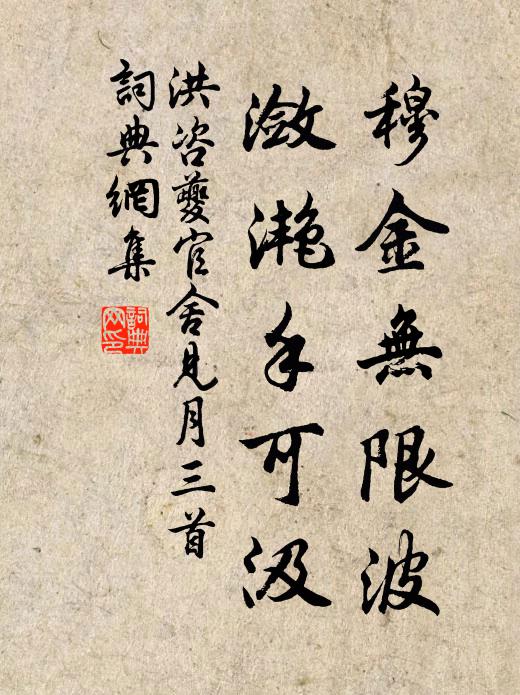 穆金無限波
瀲灧手可汲
洪咨夔官舍見月三首
詞典網集
詞典
网印